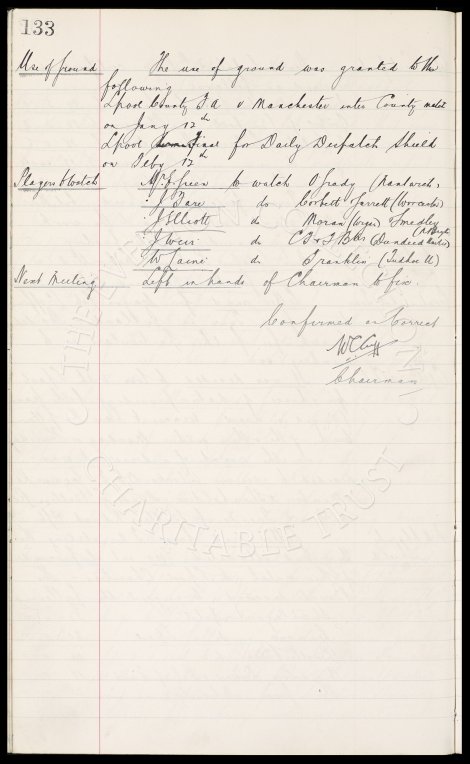 133
Use of Ground The use of ground was granted to the
following
Lpool County F.A. v Manchester inter County match
on Jany 12th
Lpool Final for Daily Despatch Shield
on Feby 12th
Players to watch Mr Green to watch O'Grady (Nantwich)
J. Bare do Corbett Jarrett (Worcester)
J Elliott do Moran (Wigan) Smedley
J Weir do (Dundee
W do Franklin (Tudhoe U)
Next Meeting Left in hands of Chairman to fix.
Confirmed as Correct
W C Cuff
Chairman
THE EVERTON
CHARITABLE TRUST